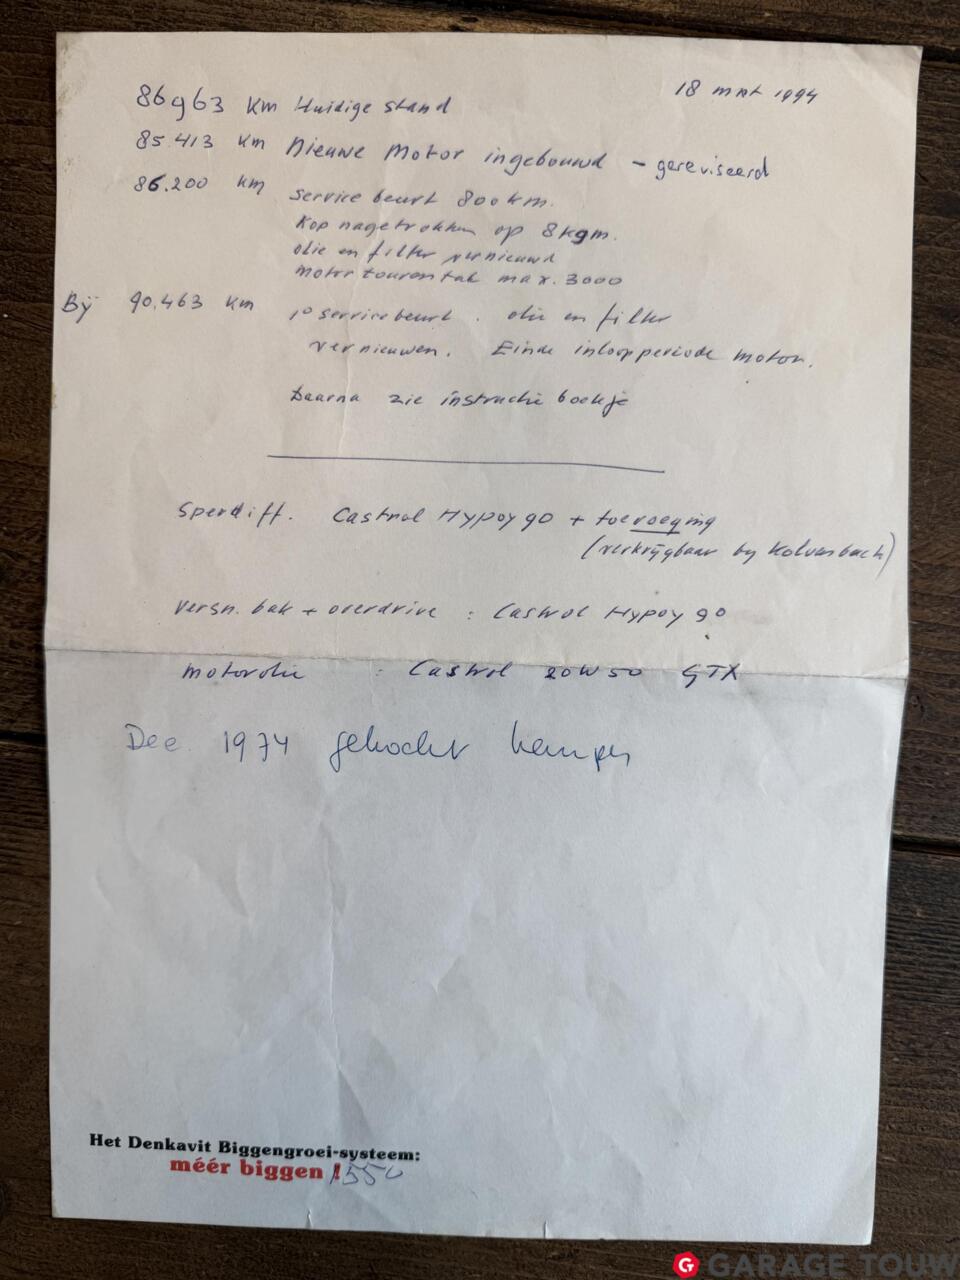 18 mrt 1994
86963 km Huidige stand
85.413 km Nieuwe Motor ingebouwd - gereviseerd
86.200 km Service beurt 800 km.
Kop nagetrokken op 8 kgm.
olie en filter vernieuwd
motor tourental max. 3000
Bij 90.463 km 1e servicebeurt. olie en filter
vernieuwen. Einde inloopperiode motor.
Daarna zie instructie boekje
Sperdiff. Castrol Hypoy 90 + toevoeging
(verkrijgbaar by Kalvenbach)
Versn. bak + overdrive : Castrol Hypoy 90
motorolie : Castrol 20W50 GTX
Dec. 1974 gekocht
Het Denkavit Biggengroei-systeem:
méér biggen !
GARAGE TOUW